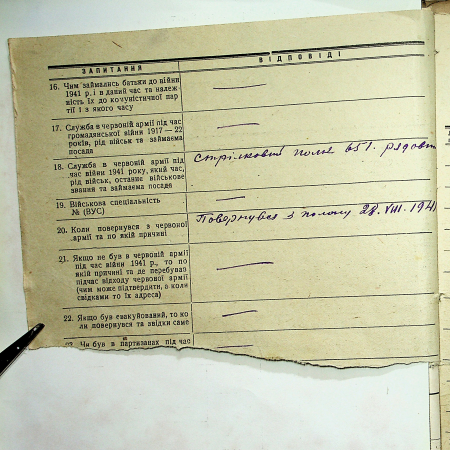 ЗАПИТАННЯ
ВІДПОВІДІ
16. Чим займались батьки до війни
1941 р. і в даний час та належ-
ність їх до комуністичної пар-
тії і з якого часу
17. Служба в червоній армії під час
громадянської війни 1917—22
років, рід військ та займаєма
посада
18. Служба в червоній армії під
час війни 1941 року, який час,
рід військ, останнє військове
звання та займаєма посада
Стрілковий полк 651. рядов
19. Військова спеціальність
№ (ВУС)
20. Коли повернувся з червоної
армії та по якій причині
Повернувся з полону 28. VIII. 1941
21. Якщо не був в червоній армії
під час війни 1941 р., то по
якій причині та де перебував
підчас відходу червоної армії
(чим може підтвердити, а коли
свідками то їх адреса)
22. Якщо був евакуйований, то ко-
ли повернувся та звідки саме
23. Чи був в партизанах під час